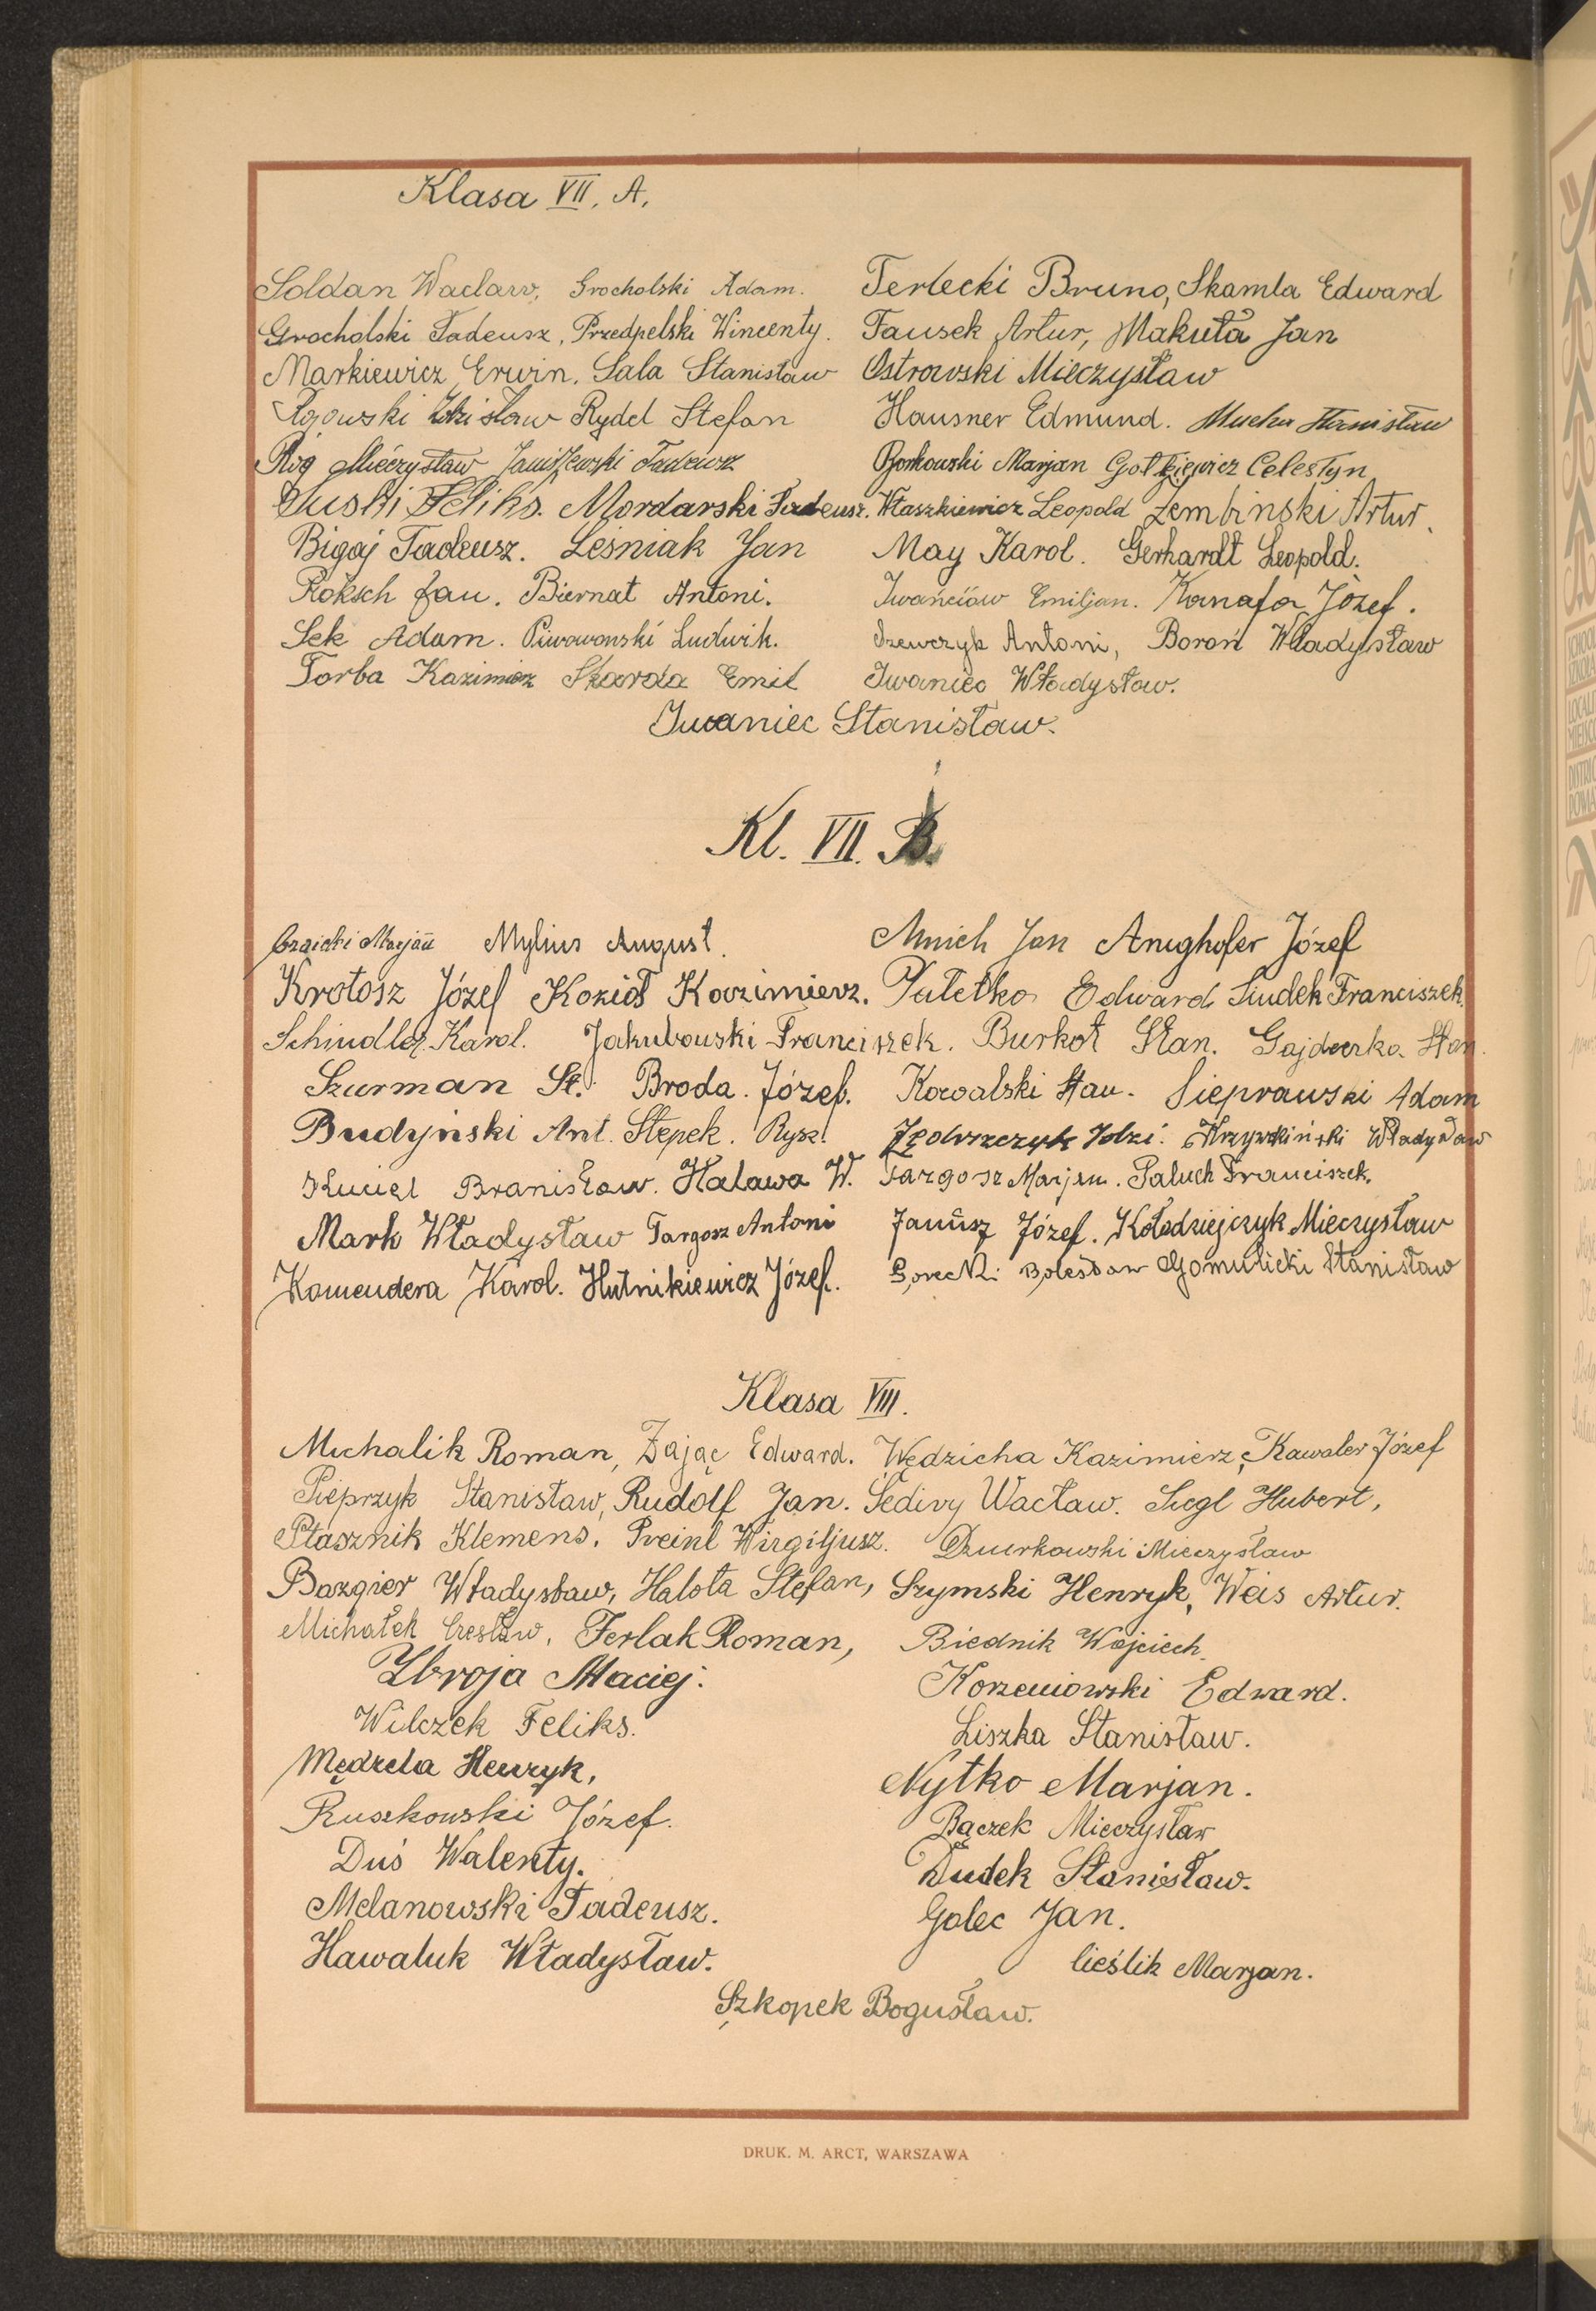 Klasa VII. A.
Soldan Wacław, Grocholski Adam. Terlecki Bruno, Skamla Edward
Grocholski Tadeusz, Przedpelski Wincenty. Fausek Artur, Makuła Jan
Markiewicz Erwin. Sala Stanisław Ostrowski Mieczysław
Rogowski Zdzisław Rydel Stefan Hausner Edmund. Mucha Stanisław
Róg Mieczysław Janiszewski Tadeusz Borkowski Marjan Gołkiewicz Celestyn
Suski Feliks. Mordarski Tadeusz. Właszkiewicz Leopold Zembinski Artur.
Bigaj Tadeusz. Leśniak Jan May Karol. Gerhardt Leopold.
Roksch Jan. Biernat Antoni. Iwańciów Emiljan. Kanafa Józef.
Sek Adam. Piwowoński Ludwik. Szewczyk Antoni, Boroń Władysław
Torba Kazimierz Skarda Emil Iwaniec Władysław.
Iwaniec Stanisław.
Kl. VII. B.
Czaicki Marjan Mylius August. Mnich Jan Amghofer Józef
Krotosz Józef Kozioł Kazimierz. Pałetko Edward Siudek Franciszek.
Schindler Karol. Jakubowski Franciszek. Burkot Stan. Gajdeczka Stan.
Szurman St. Broda Józef. Kowalski Stan. Sieprawski Adam
Budyński Ant. Stepek. Rysz. Jędrzczyk Idzi. Krzywkiński Władysław
Kuciel Branisław. Haława W. Targosz Marjan. Paluch Franciszek.
Mark Władysław Targosz Antoni Janusz Józef. Kołodziejczyk Mieczysław
Komendera Karol. Hutnikiewicz Józef. Gorecki Bolesław Gomulicki Stanisław
Klasa VIII.
Michalik Roman, Zając Edward. Wędzicha Kazimierz, Kawaler Józef
Pieprzyk Stanisław, Rudolf Jan. Šedivy Wacław. Siegl Hubert,
Ptasznik Klemens. Preinl Wirgiljusz. Dziurkowski Mieczysław
Bazgier Władysław, Halota Stefan, Szymski Henryk, Weis Artur.
Michałek Czesław, Ferlak Roman, Biednik Wojciech.
Zbroja Maciej. Korzeniowski Edward.
Wilczek Feliks. Liszka Stanisław.
Mędrela Henryk, Nytko Marjan.
Ruszkowski Józef. Bączek Mieczysław
Duś Walenty. Dudek Stanisław.
Melanowski Tadeusz. Golec Jan.
Hawaluk Władysław. Cieślik Marjan.
Szkopek Bogusław.
DRUK. M. ARCT, WARSZAWA